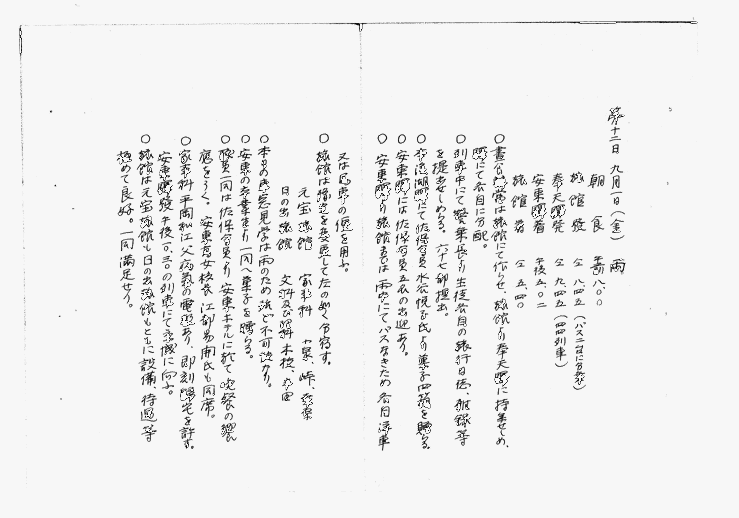 第十二日 九月一日(金) 雨
朝食 午前八.〇〇
旅館発 〃 八.四五(バス二台に分乗)
奉天駅発 〃 九.四五(四四列車)
安東駅着 午後五.〇二
旅館着 〃 五.四〇
〇昼食弁当は旅館にて作らせ、旅館より奉天駅に持参せしめ、
駅にて各自に分配。
〇列車中にて 生徒各自の旅行日誌、雑録等
を提出せしめる。六十七部提出。
〇 にて佐保会員 氏より菓子四箱を贈らる。
〇安東駅には佐保会員五名の出迎あり。
〇安東駅より旅館までは雨にてバスなきため各自洋車
又は馬車の便を用ふ。
〇旅館は 変更して左の如く分宿す。
元宝旅館 家事科
日の出旅館 文科及び理科
〇本日の市内見学は雨のため 不可能なり。
〇安東の卒業生より一同へ菓子を贈らる。
〇教員一同は佐保会員より安東ホテルに於て晩餐の饗
応をうく。安東高女校長江部易開氏も同席。
〇家事科平岡松江父病気の電報あり、即刻帰宅を許す。
安東駅発午後一〇.三〇の列車にて 向ふ。
〇旅館は元宝旅館も日の出旅館もともに設備、待遇等
極めて良好。一同満足せり。